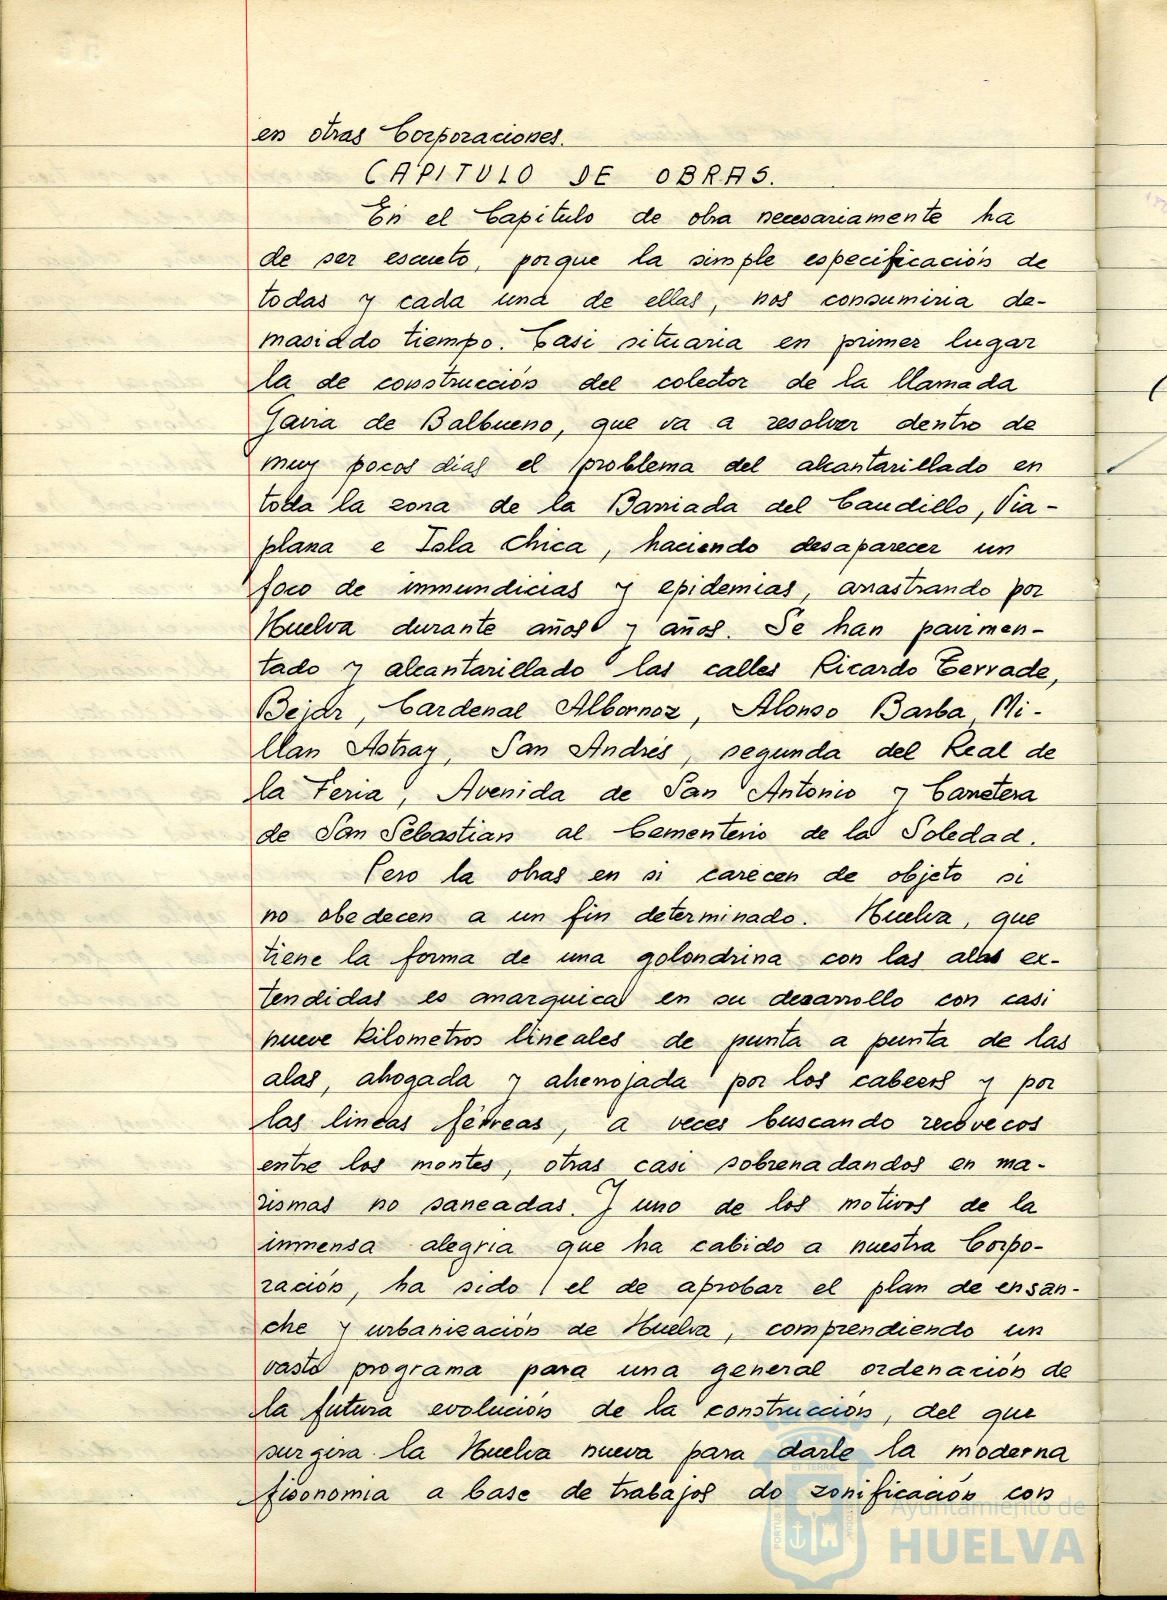 en otras Corporaciones.
CAPITULO DE OBRAS.
En el Capitulo de obra necesariamente ha
de ser escueto, porque la simple especificación de
todas y cada una de ellas, nos consumiria de-
masiado tiempo. Casi situaria en primer lugar
la de construcción del colector de la llamada
Gavia de Balbueno, que va a resolver dentro de
muy pocos dias el problema del alcantarillado en
toda la zona de la Barriada del Caudillo, Via-
plana e Isla Chica, haciendo desaparecer un
foco de inmundicias y epidemias, arrastrando por
Huelva durante años y años. Se han pavimen-
tado y alcantarillado las calles Ricardo Terrade,
Bejar, Cardenal Albornoz, Alonso Barba, Mi-
llan Astray, San Andrés, segunda del Real de
la Feria, Avenida de San Antonio y Carretera
de San Sebastian al Cementerio de la Soledad.
Pero la obras en si carecen de objeto si
no obedecen a un fin determinado. Huelva, que
tiene la forma de una golondrina con las alas ex-
tendidas es anarquica en su desarrollo con casi
nueve kilometros lineales de punta a punta de las
alas, ahogada y aherrojada por los cabezos y por
las lineas férreas, a veces buscando recovecos
entre los montes, otras casi sobrenadandos en ma-
rismas no saneadas. Y uno de los motivos de la
inmensa alegria que ha cabido a nuestra Corpo-
ración, ha sido el de aprobar el plan de ensan-
che y urbanización de Huelva, comprendiendo un
vasto programa para una general ordenación de
la futura evolución de la construcción, del que
surgira la Huelva nueva para darle la moderna
fisonomia a base de trabajos do zonificación con
Ayuntamiento de
HUELVA